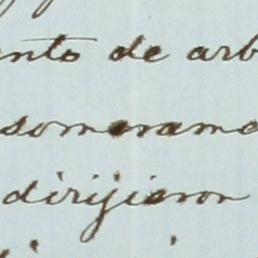 ento de arb
someramo
dirijieron